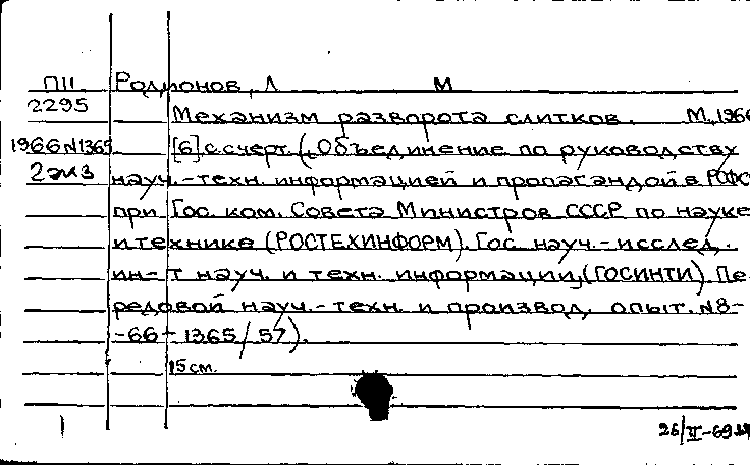 П11 Родионов, Л М
2295 Механизм разворота слитков. М, 1966
1966 N1365 [6] с. с черт. („Объединение по руководству
2 экз науч.-техн. информацией и пропагандой в РСФС
при Гос. ком. Совета Министров СССР по науке
и технике (РОСТЕХИНФОРМ). Гос. науч.-исслед.
ин-т науч. и техн. информации, (ГОСИНТИ). Пе
редовой науч.-техн. и производ. опыт. N8-
-66-1365/57).
15 см.
26/II-69